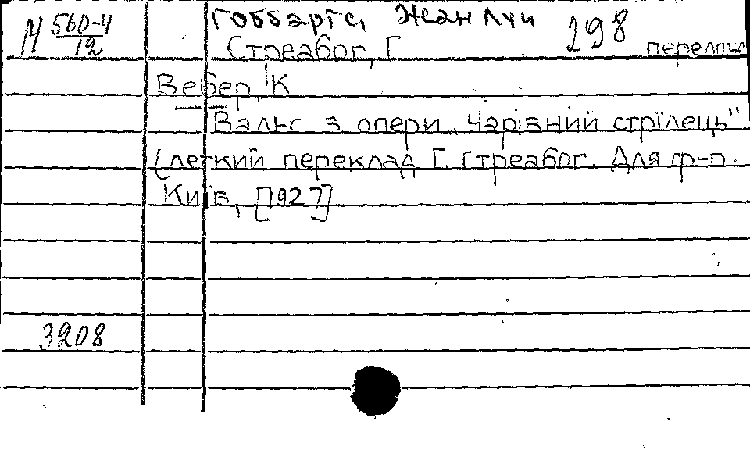 М 560-4/12
Гоббартс, Жан Луи
298
Стреабог, Г перепис
Вебер, К
Вальс з опери „Чарівний стрілець"
(легкий переклад Г. Стреабог. Для ф-п.
Київ, [1927]
3208